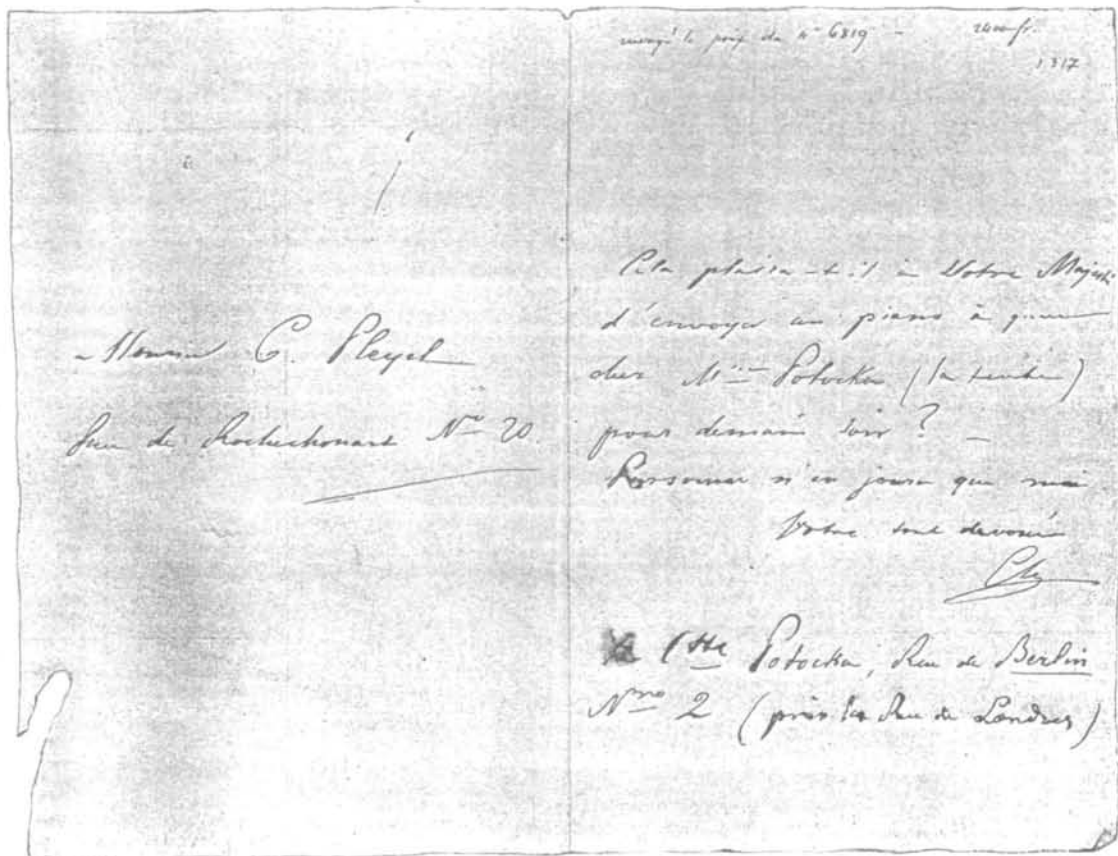 à Monsieur C. Pleyel
Rue de Rochechouart No 20
envoyé le prix du no 6819 — 2400 fr.
1317
Cela plaira-t-il à Votre Majesté
d'envoyer un piano à queue
chez Mme Potocka
pour demain soir ? —
Personne n'en jouera que moi
Votre tout dévoué
Ch
Ctte Potocka, Rue de Berlin
Nmo 2 (près la Rue de Londres)